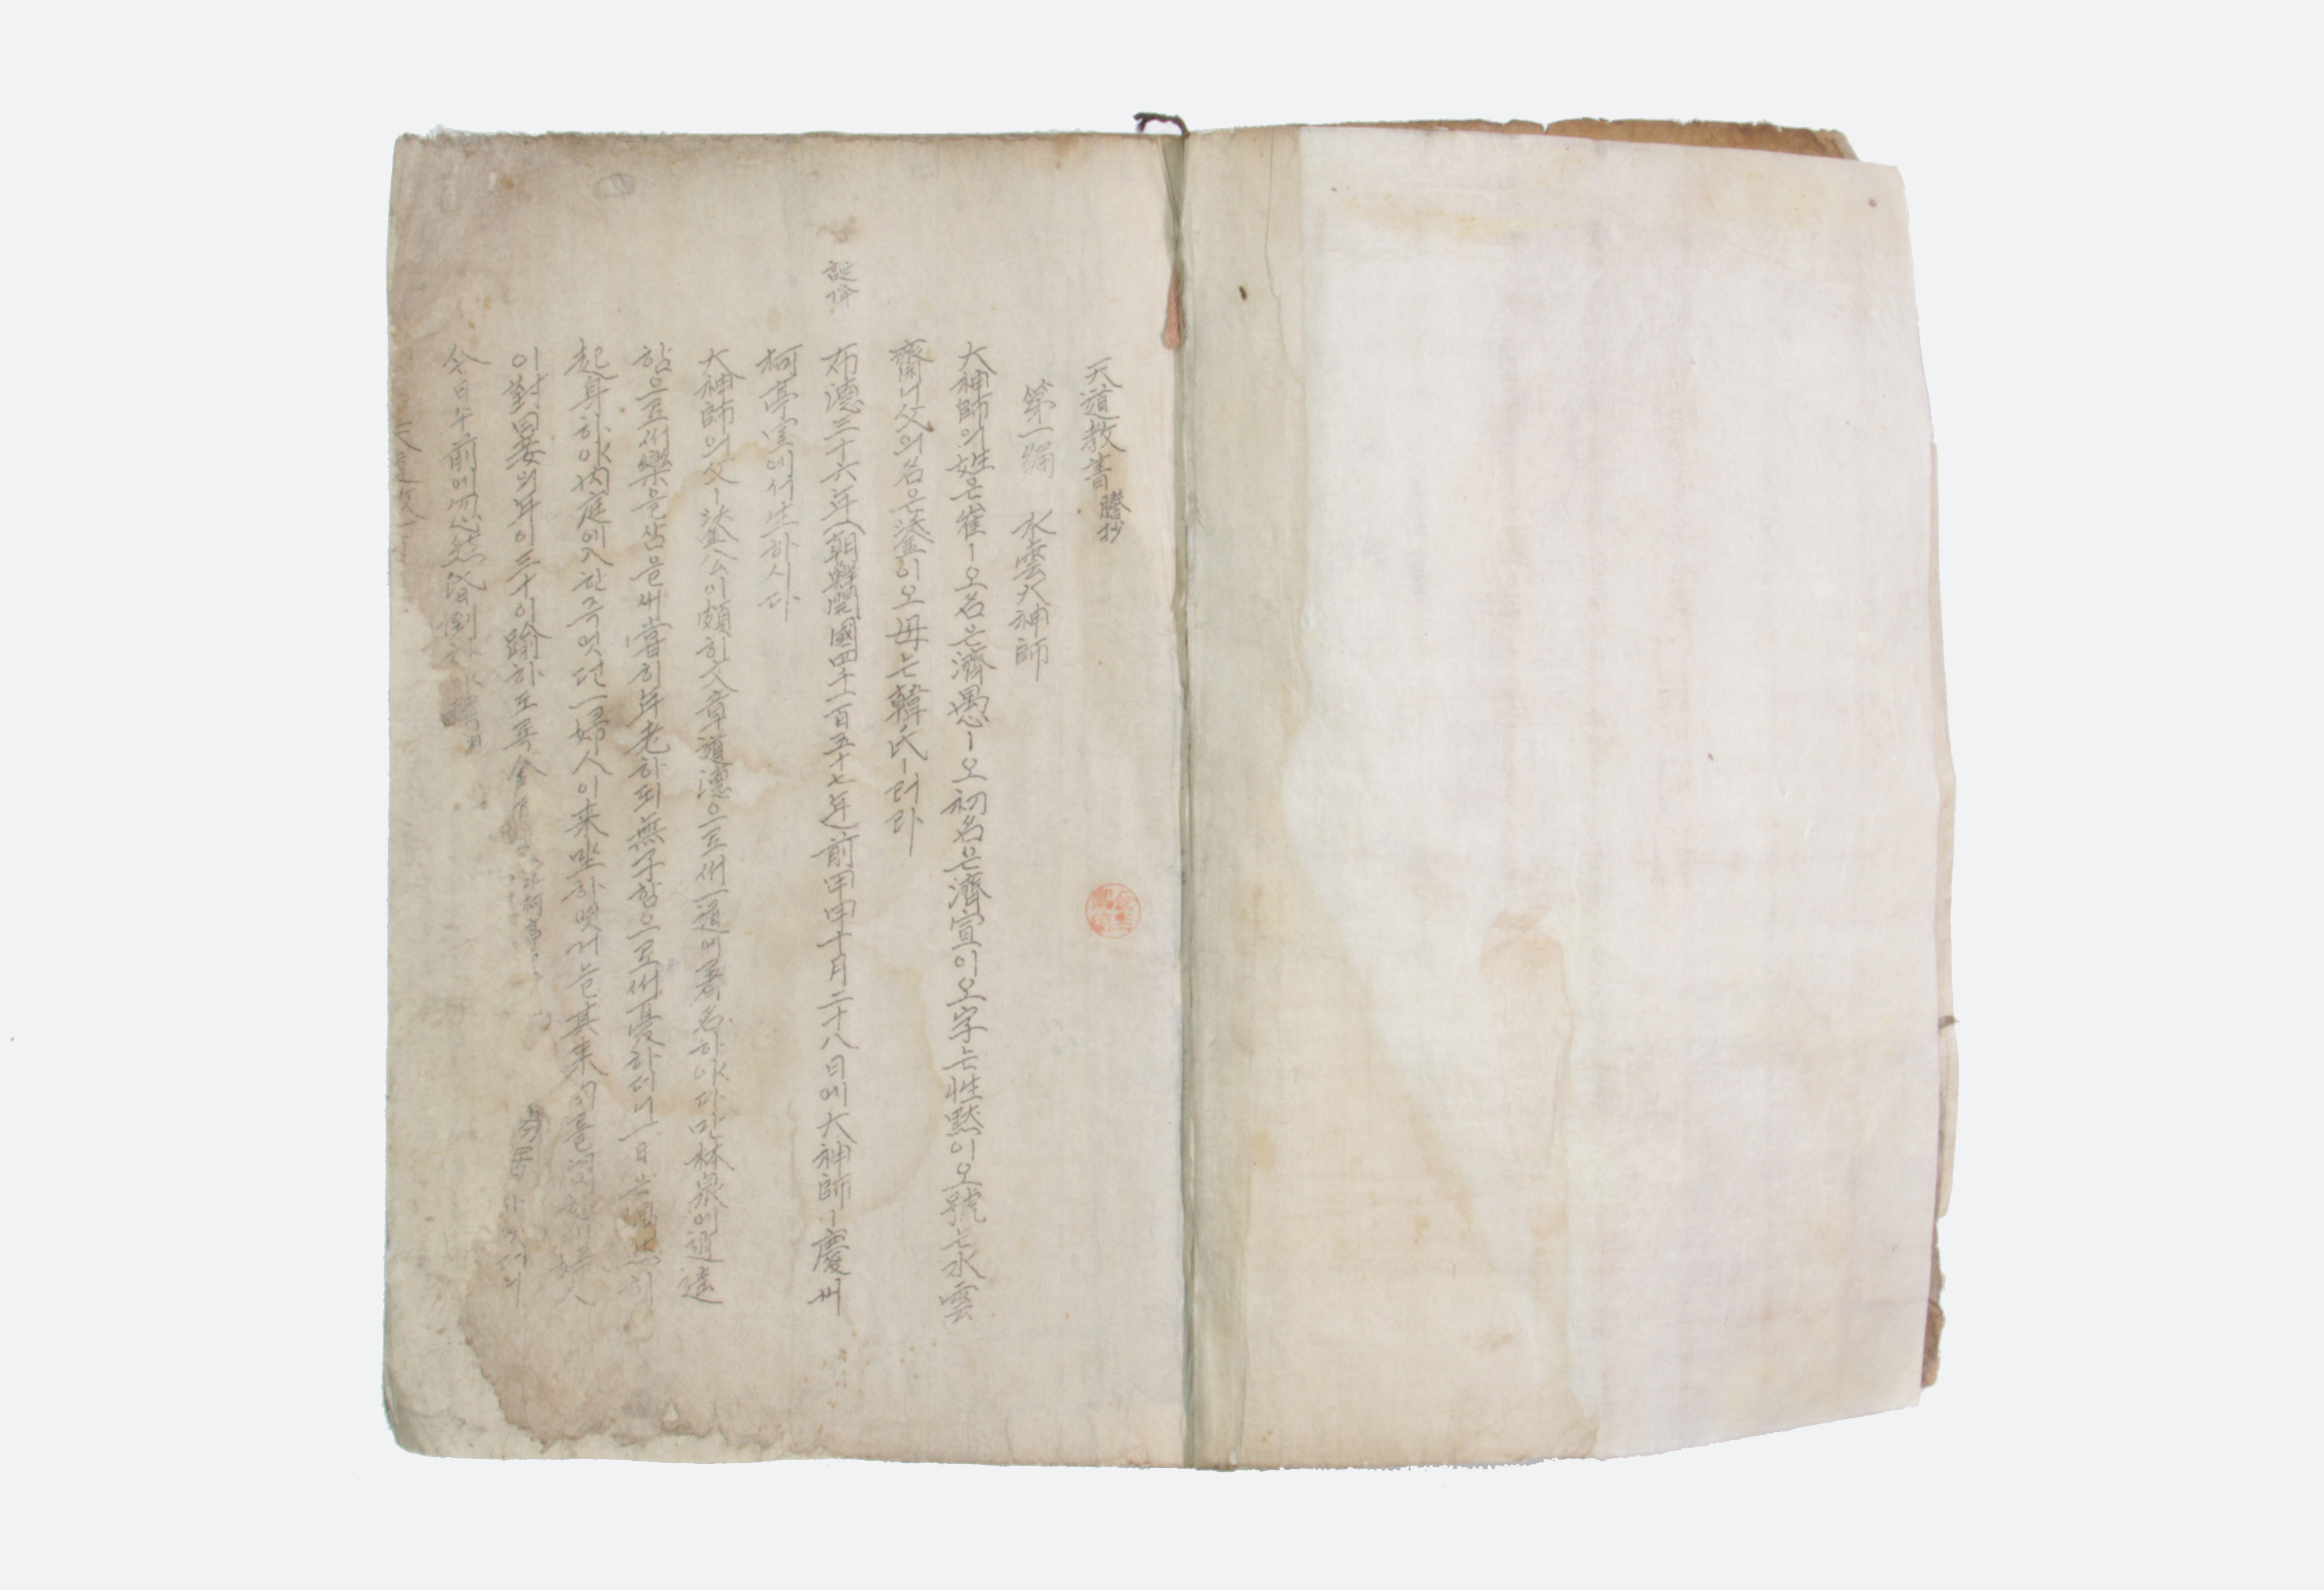 天道教書 謄抄
第一編 水雲大神師
大神師의姓은崔ㅣ오名은濟愚ㅣ오初名은濟宣이오字는性黙이오號는水雲
齋니父의名은䥧이오母는韓氏ㅣ러라
誕降
布德三十六年(朝鮮開國四千一百五十七年)前甲申十月二十八日에大神師ㅣ慶州
柯亭里에서生하시다
大神師의父ㅣ䥧公이頗히文章道德으로써一道에著名하야다만林泉에逍遙
함으로써樂을삼을새嘗히年老하되無子함으로써憂하더니一日은偶然히
起身하야內庭에入한즉엇던一婦人이來坐하엿거늘其來的를問한대婦人
이對曰妾의年이三十이踰하도록
今日午前에忽然昏倒하야